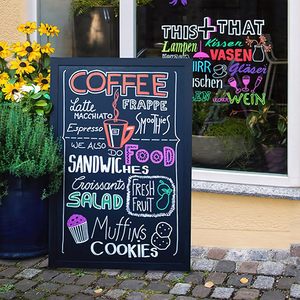 COFFEE
Latte
MACCHIATO
FRAPPE
Espresso
Smoothies
WE ALSO DO
FOOD
SANDWICHES
Croissants
FRESH
FRUIT
SALAD
Muffins
COOKIES
THIS + THAT
Lampen
Kissen
VASEN
Gläser
WEIN